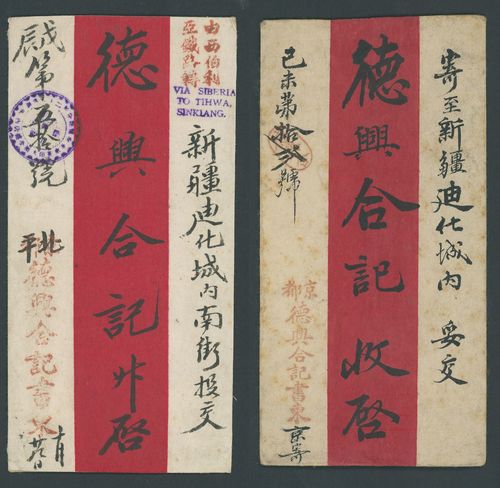 由西伯利
亞鐵路轉
VIA SIBERIA
TO TIHWA,
SINKIANG.
新疆迪化城內南街投交
德興合記升啓
第五拾號
北平
德興合記書柬
寄至新疆迪化城內 妥交
德興合記收啓
己未第拾弍號
京都
德興合記書柬
京寄